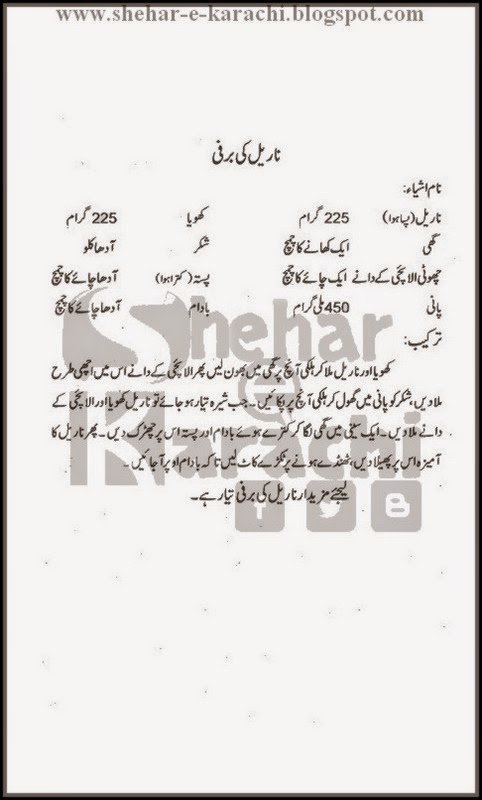 www.shehar-e-karachi.blogspot.com
ناریل کی برفی
نام اشیاء:
ناریل (پسا ہوا) 225 گرام کھویا 225 گرام
گھی ایک کھانے کا چمچ شکر آدھا کلو
چھوٹی الائچی کے دانے ایک چائے کا چمچ پستہ (کترا ہوا) آدھا چائے کا چمچ
پانی 450 ملی گرام بادام آدھا چائے کا چمچ
ترکیب:
کھویا اور ناریل ملا کر ہلکی آنچ پر گھی میں بھون لیں پھر الائچی کے دانے اس میں اچھی طرح
ملا دیں، شکر کو پانی میں گھول کر ہلکی آنچ پر پکائیں۔ جب شیرہ تیار ہو جائے تو ناریل کھویا اور الائچی کے
دانے ملا دیں۔ ایک سینی میں گھی لگا کر کترے ہوئے بادام اور پستہ اس پر چھڑک دیں۔ پھر ناریل کا
آمیزہ اس پر پھیلا دیں، ٹھنڈے ہونے پر ٹکڑے کاٹ لیں تاکہ بادام اوپر آ جائیں۔
لیجئے مزیدار ناریل کی برفی تیار ہے۔
Shehar
e
Karachi